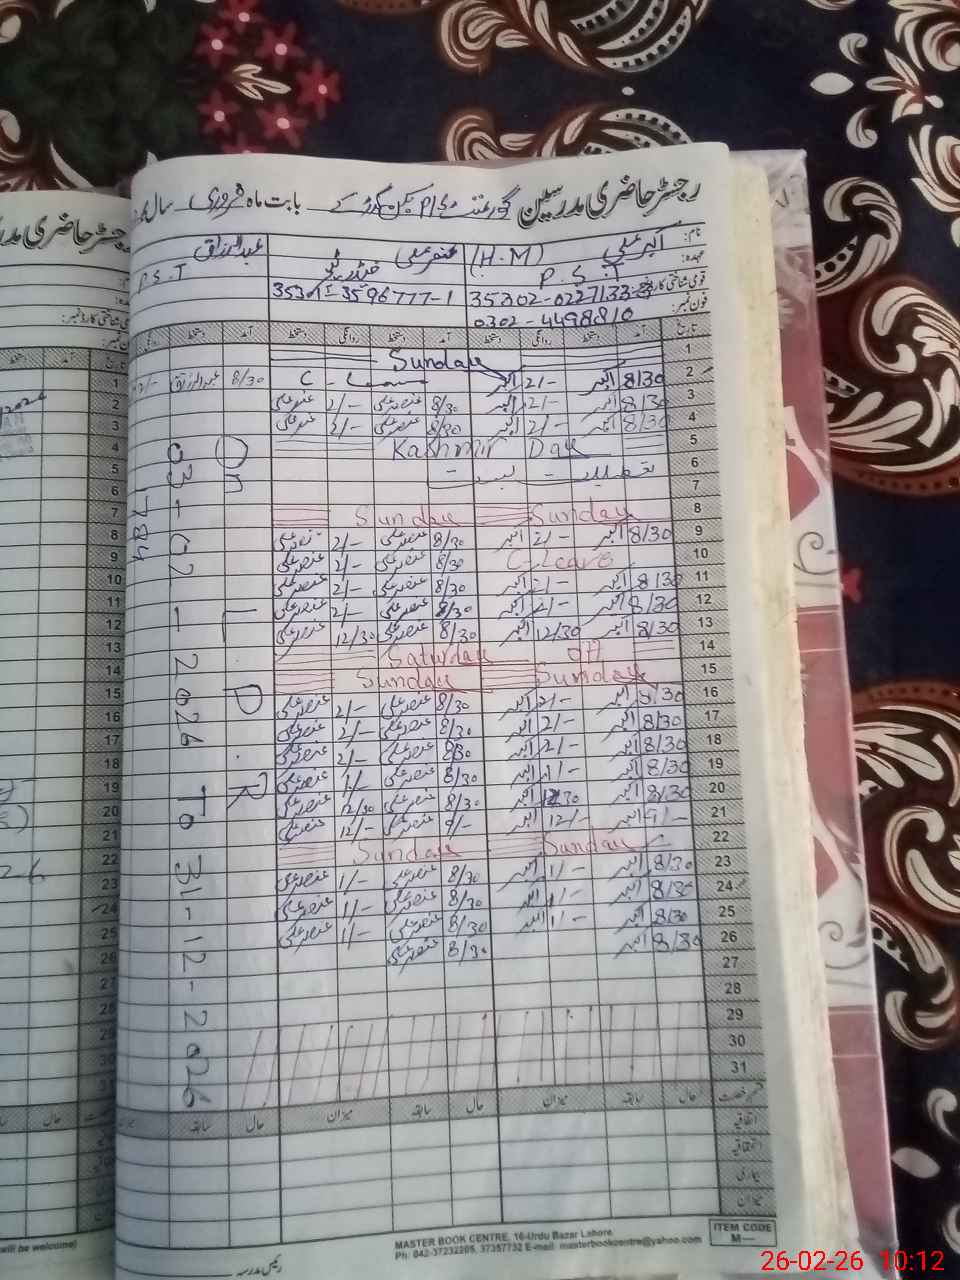 رجسٹر حاضری مدرسین گورنمنٹ P/S بابت ماہ فروری سال
نام: اکبر علی (H.M) عنصر علی عبدالرزاق
عہدہ: P.S.T P.S.T
قومی شناختی کارڈ نمبر: 35302-0227133-3 35301-3596777-1
فون نمبر: 0302-4498810
تاریخ آمد دستخط روانگی دستخط آمد دستخط روانگی دستخط آمد دستخط روانگی
1 Sunday
2 8/30 اکبر 2/- اکبر C - 8/30 عبدالرزاق 2/-
3 8/30 اکبر 2/- اکبر 8/30 عنصر علی 2/- عنصر علی
4 8/30 اکبر 2/- اکبر 8/30 عنصر علی 2/- عنصر علی
5 Kashmir Day
6 تعطیل
7
8 Sunday Sunday
9 8/30 اکبر 2/- اکبر 8/30 عنصر علی 2/- عنصر علی
10 C-Leave 8/30 عنصر علی 2/- عنصر علی
11 8/30 اکبر 2/- اکبر 8/30 عنصر علی 2/- عنصر علی
12 8/30 اکبر 2/- اکبر 8/30 عنصر علی 2/- عنصر علی
13 8/30 اکبر 12/30 اکبر 8/30 عنصر علی 12/30 عنصر علی
14 Saturday off
15 Sunday Sunday
16 8/30 اکبر 2/- اکبر 8/30 عنصر علی 2/- عنصر علی
17 8/30 اکبر 2/- اکبر 8/30 عنصر علی 2/- عنصر علی
18 8/30 اکبر 2/- اکبر 8/30 عنصر علی 2/- عنصر علی
19 8/30 اکبر 1/- اکبر 8/30 عنصر علی 1/- عنصر علی
20 8/30 اکبر 12/30 اکبر 8/30 عنصر علی 12/30 عنصر علی
21 9/- اکبر 12/- اکبر 9/- عنصر علی 12/- عنصر علی
22 Sunday Sunday
23 8/30 اکبر 1/- اکبر 8/30 عنصر علی 1/- عنصر علی
24 8/30 اکبر 1/- اکبر 8/30 عنصر علی 1/- عنصر علی
25 8/30 اکبر 1/- اکبر 8/30 عنصر علی 1/- عنصر علی
26 8/30 اکبر 8/30 عنصر علی
27
28
29
30
31
On L.P.R
03-02-2026 To 31-12-2026
1784
حال سابقہ میزان حال سابقہ میزان حال سابقہ
اتفاقیہ
استحقاقیہ
بیماری
میزان
MASTER BOOK CENTRE, 16-Urdu Bazar Lahore
Ph: 042-37232205, 37357732 E-mail: masterbookcentre@yahoo.com
ITEM CODE
M—
رئیس مدرسہ
will be welcome)
26-02-26 10:12